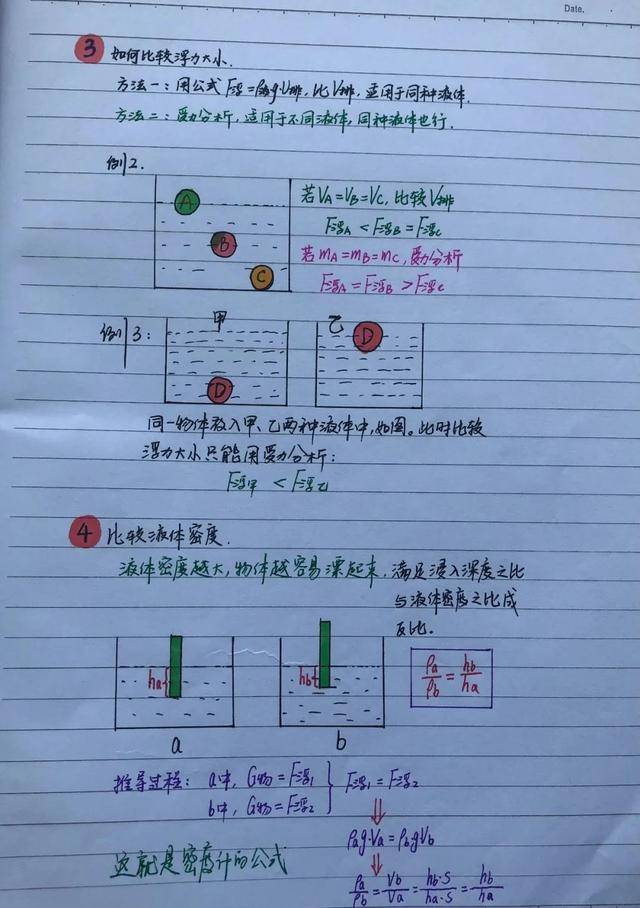 Date.
③ 如何比较浮力大小.
方法一:用公式 F浮=ρ液g·V排, 比V排, 适用于同种液体.
方法二:受力分析, 适用于不同液体, 同种液体也行.
例2.
A
B
C
若VA=VB=VC, 比较V排
F浮A < F浮B = F浮C
若mA=mB=mC, 受力分析
F浮A = F浮B > F浮C
例3:
甲
D
乙
D
同一物体放入甲、乙两种液体中, 如图。此时比较
浮力大小只能用受力分析:
F浮甲 < F浮乙
④ 比较液体密度.
液体密度越大, 物体越容易漂起来. 满足浸入深度之比
与液体密度之比成
反比.
ha
a
hb
b
ρa/ρb = hb/ha
推导过程: a中, G物=F浮1
b中, G物=F浮2
F浮1=F浮2
⇓
ρag·Va=ρbgVb
⇓
ρa/ρb = Vb/Va = hb·S/ha·S = hb/ha
这就是密度计的公式